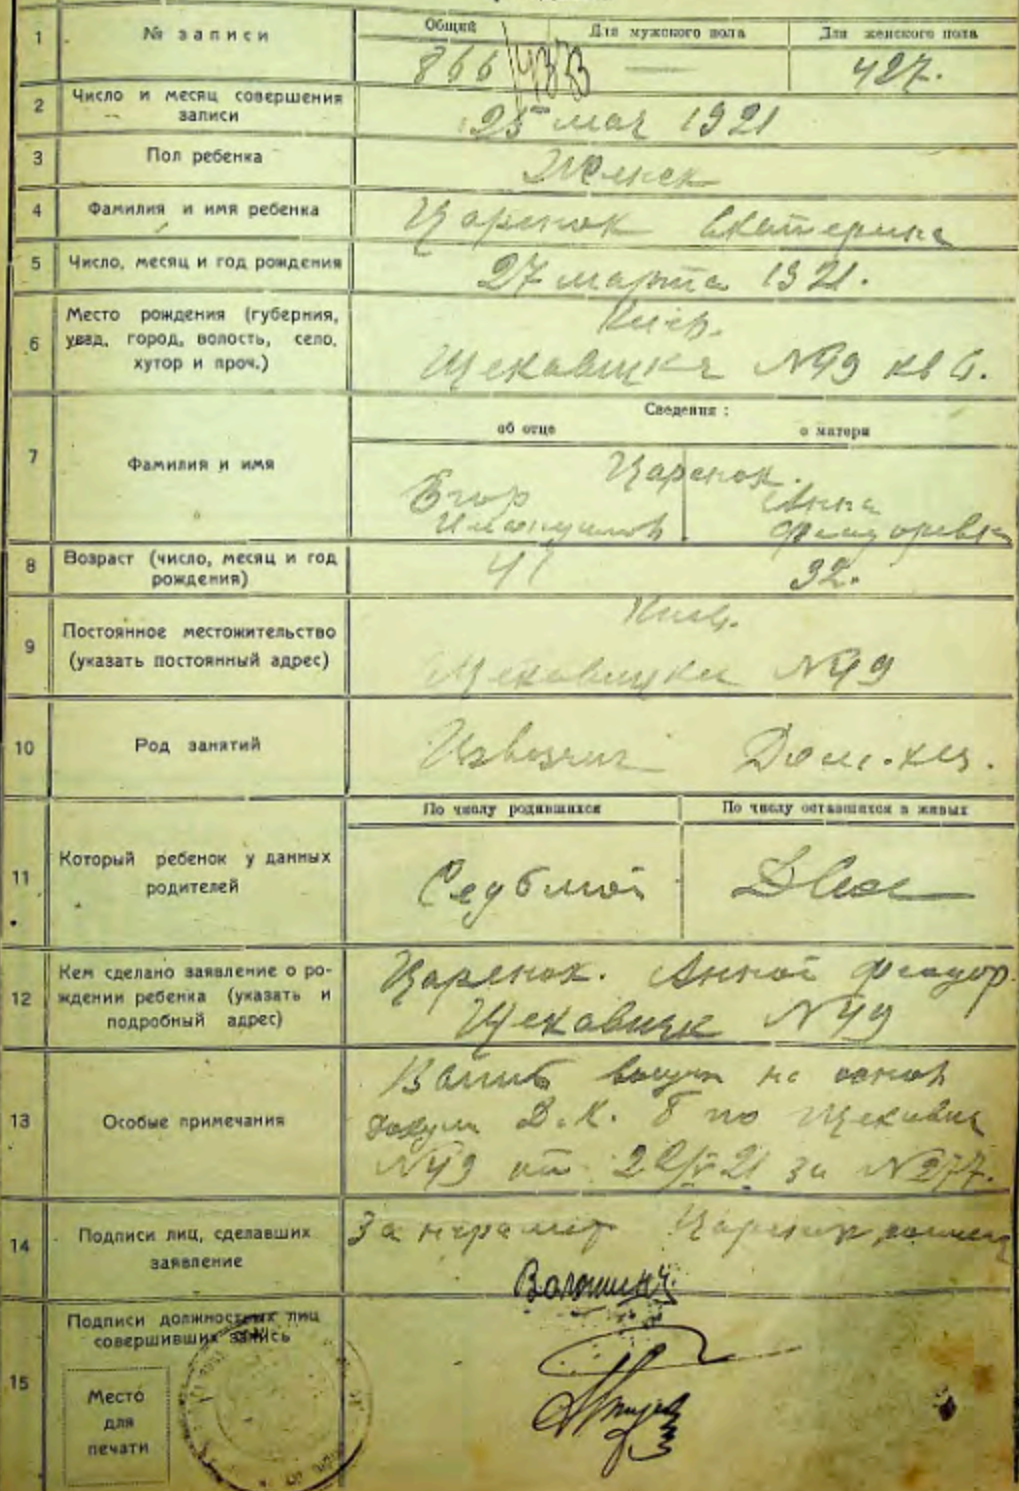 1 № записи
Общий Для мужского пола Для женского пола
866 — 427.
2 Число и месяц совершения
записи
25 мая 1921
3 Пол ребенка
Женск
4 Фамилия и имя ребенка
Царенок Екатерина
5 Число, месяц и год рождения
27 марта 1921.
6 Место рождения (губерния,
уезд, город, волость, село,
хутор и проч.)
Киев.
Щекавицкя №49 кв 6.
7 Фамилия и имя
Сведения:
об отце о матери
Царенок.
Егор Анна
8 Возраст (число, месяц и год
рождения)
41 32.
9 Постоянное местожительство
(указать постоянный адрес)
Киев.
Щекавицкая №49
10 Род занятий
Извозчик Дом. хоз.
11 Который ребенок у данных
родителей
По числу родившихся По числу оставшихся в живых
Седьмой Двое
12 Кем сделано заявление о ро-
ждении ребенка (указать и
подробный адрес)
Царенок. Анной Феодор.
Щекавицк №49
13 Особые примечания
на основ
Д.К. по Щекавиц
№49 от 21 за №277.
14 Подписи лиц, сделавших
заявление
За неграмот Царенок
15 Подписи должностных лиц
совершивших запись
Место
для
печати